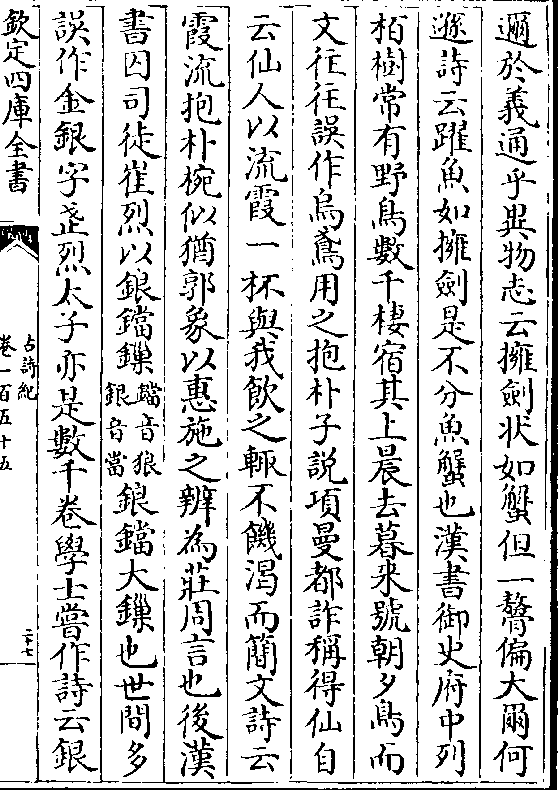 邇於義通乎異物志云擁劍状如蟹但一螯偏大爾何
遜詩云躍魚如擁劍是不分魚蟹也漢書御史府中列
栢樹常有野鳥數千棲宿其上晨去暮来號朝夕鳥而
文徃徃誤作烏鳶用之抱朴子説項曼都詐稱得仙自
云仙人以流霞一杯與我飲之輙不饑渴而簡文詩云
霞流抱朴椀似猶郭象以惠施之辨為莊周言也後漢
書囚司徒崔烈以銀鐺鏁鐺音狼銀音當鋃鐺大鏁也世間多
誤作金銀字武烈太子亦是數千卷學士嘗作詩云銀
欽定四庫全書
古詩紀
卷一百五十五
二十七